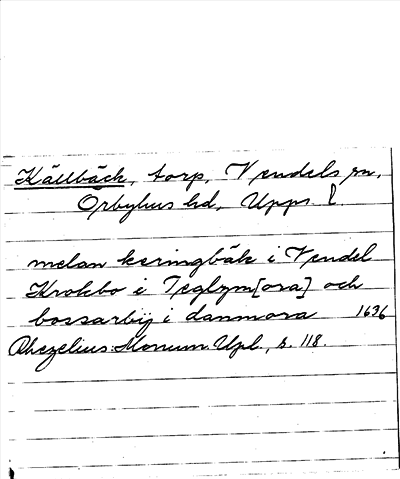 Källbäck, torp, Vendels sn,
Örbyhus hd, Upps. l.
melan keringbäk i Vendel
Krokbo i Teglym[ora] och
bossarbÿ i danmora 1636
Rhezelius: Monum. Upl., s. 118.